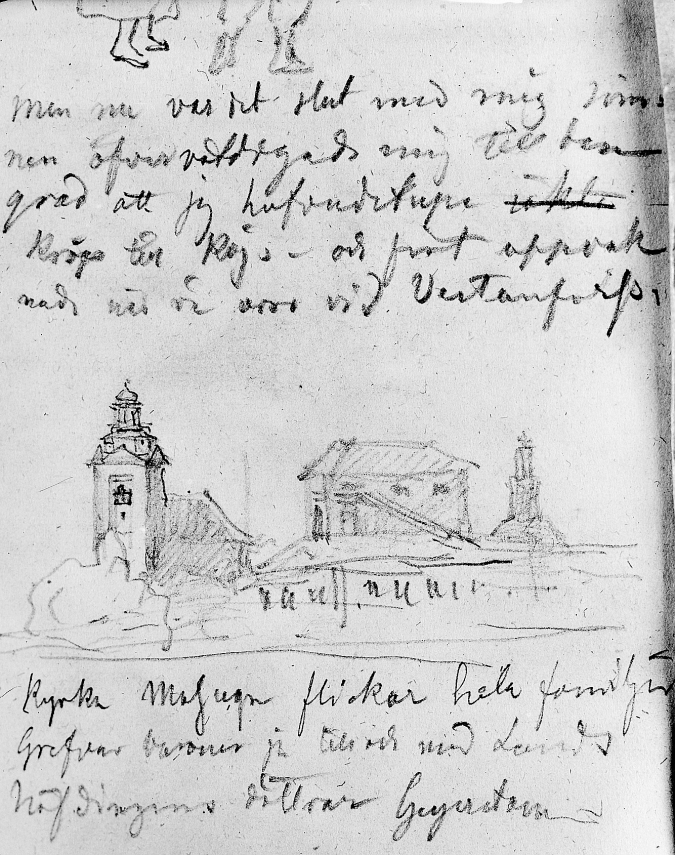 Men nu var det slut med mig Söm-
nen öfverväldigade mig till den
grad att jag
kröp och först uppvak
nade när vi voro vid Vestanfors,
Kyrka flickor hela familjer
Grefvar baroner ja till och med Lands
höfdingens döttrar Geyerstam